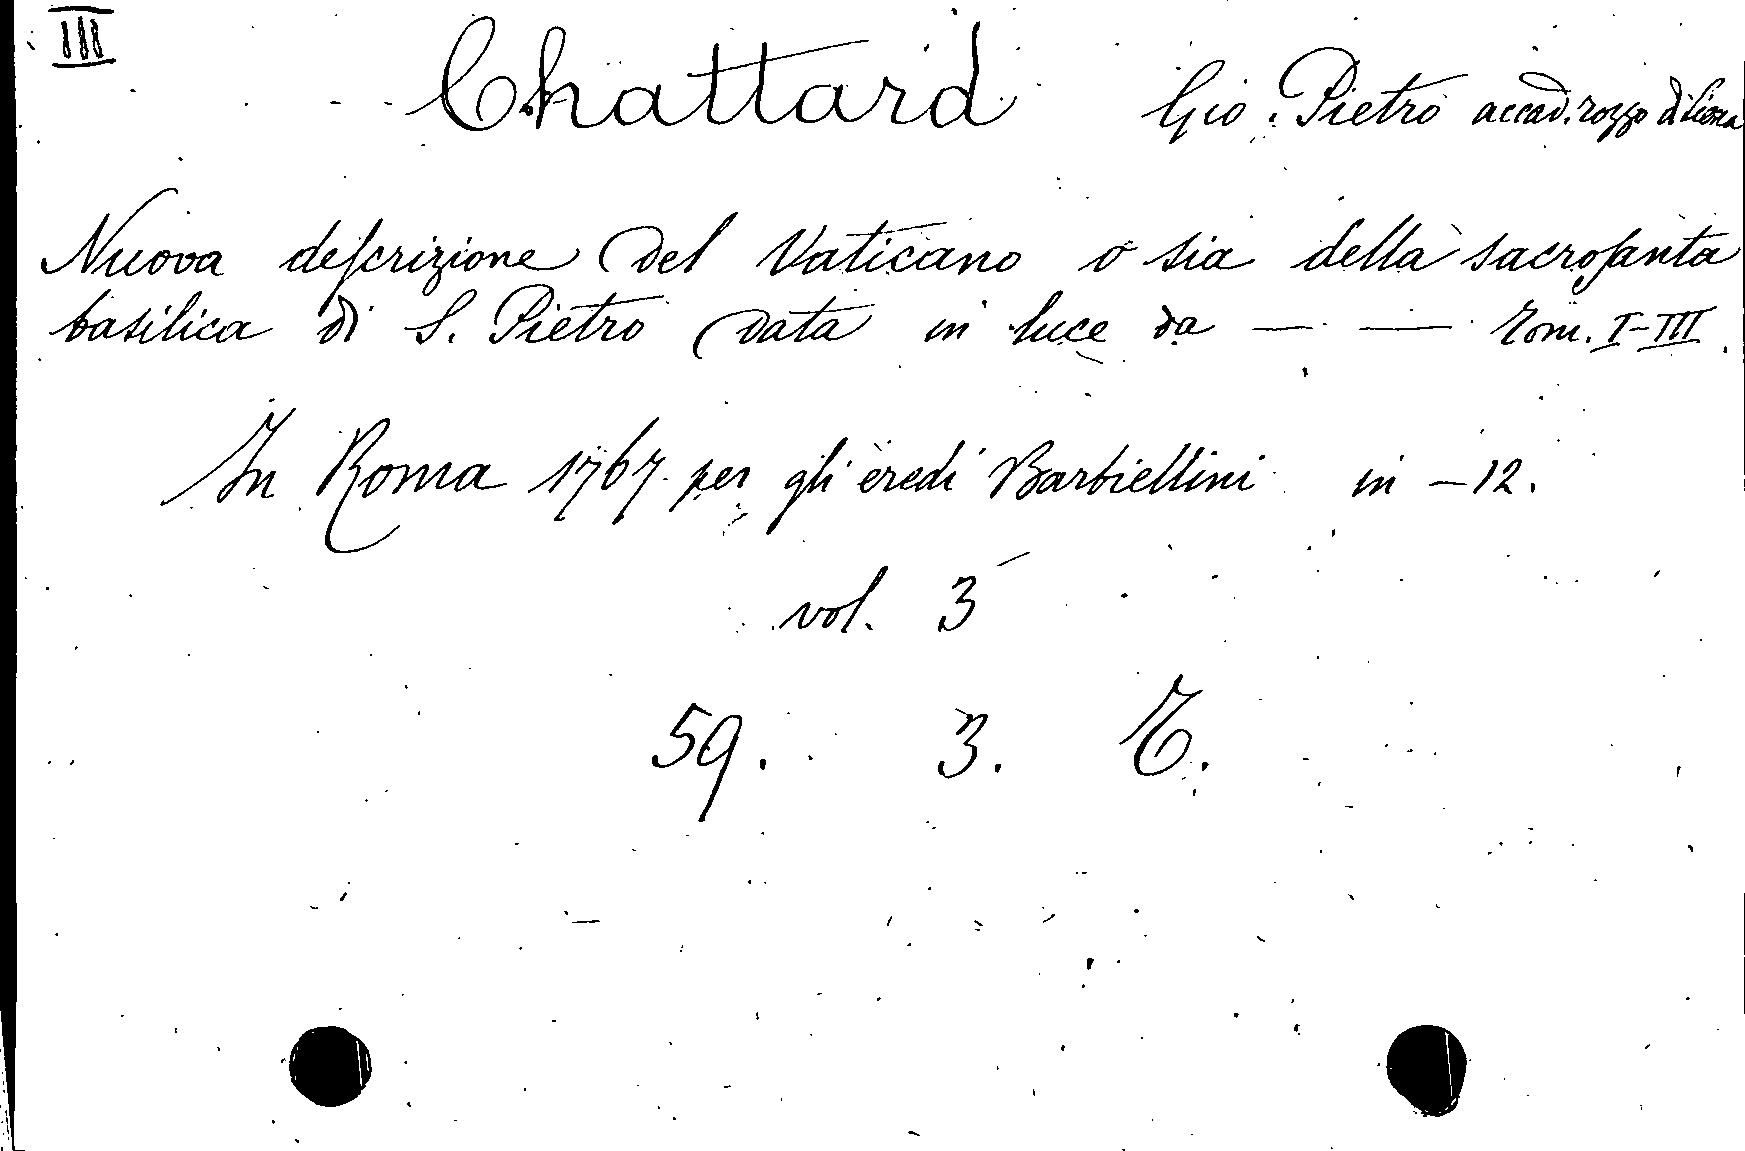 III
Chattard Gio. Pietro accad. rozzo di Siena
Nuova deſcrizione del Vaticano o sia della sacroſanta
basilica di S. Pietro data in luce da — — Tom. I-III.
In Roma 1767 per gli eredi Barbiellini in -12.
vol. 3
59. 3. T.